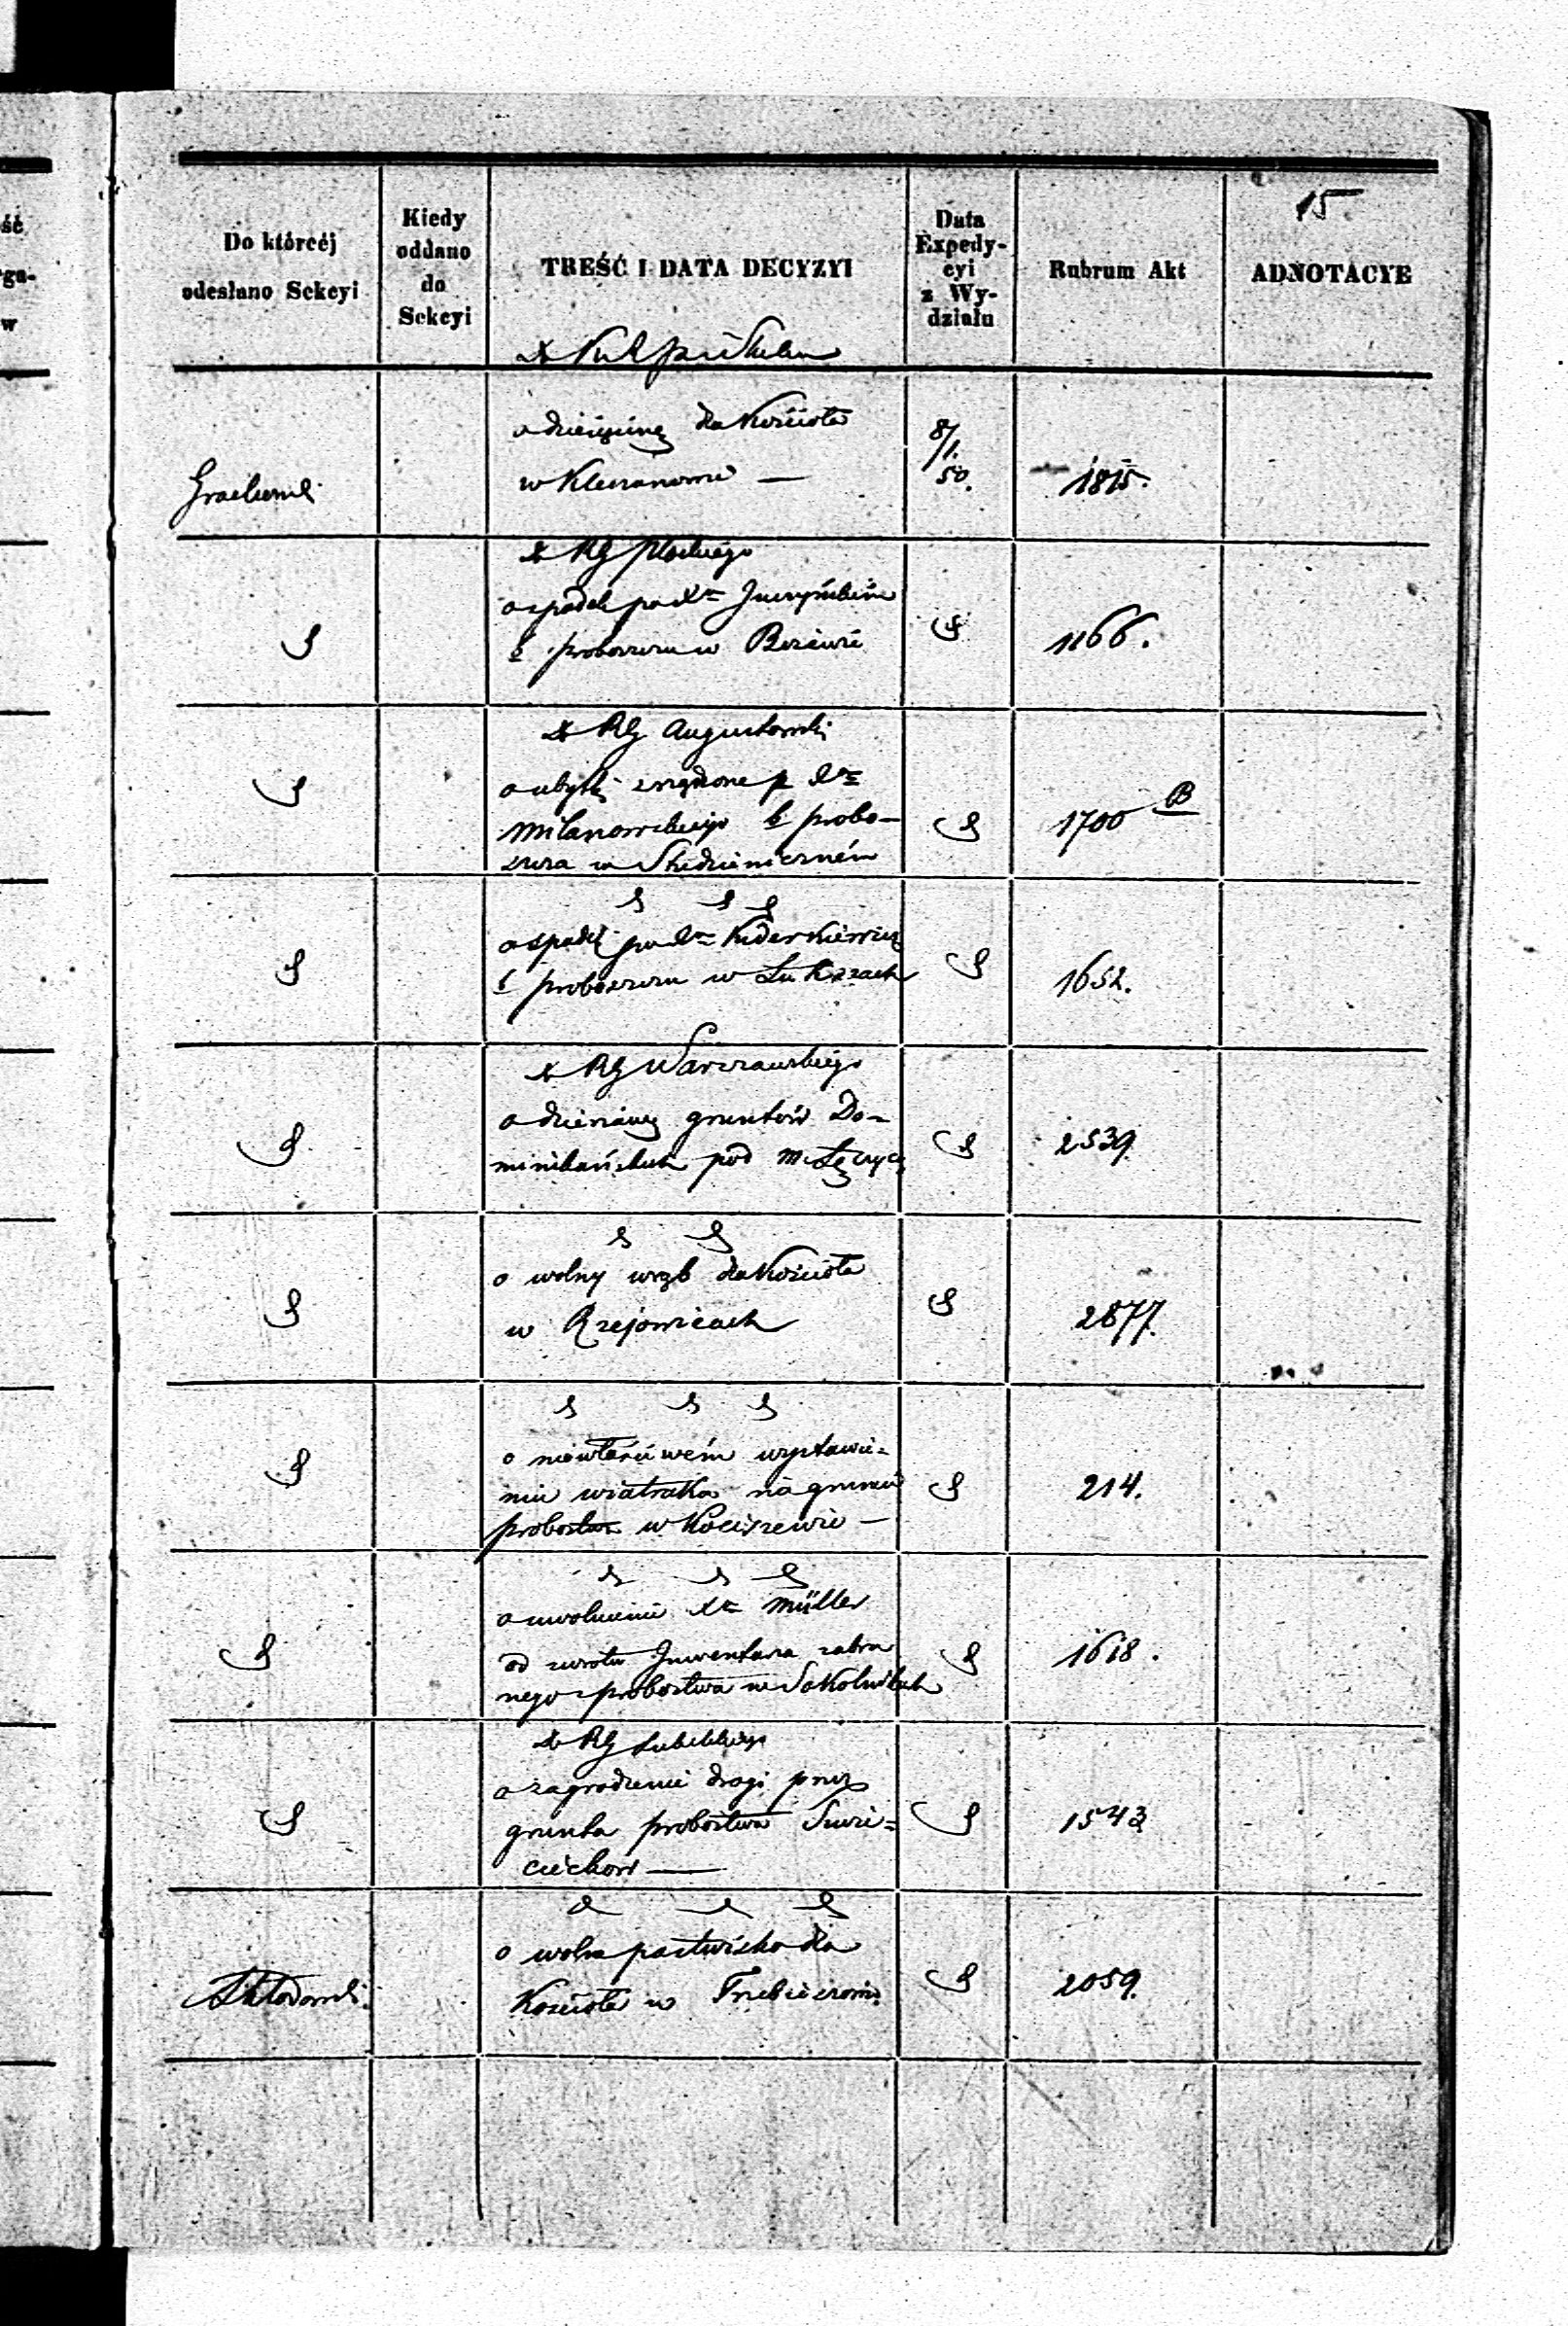 15
Do któréj
odesłano Sekcyi
Kiedy
oddano
do
Sekcyi
TREŚĆ I DATA DECYZYI
Data
Expedy-
cyi
z Wy-
działu
Rubrum Akt
ADNOTACYE
ść
rga-
w
o dziesięcinę dla Kościoła
w
8/1.
50.
1815.
do RG Płockiego
o spadek po Xe
b proboszczu w
1166.
do RG Augustowski
o ubytki zrządzone p Xe
Milanowskiego b probo-
szcza w Studzieniczném
1700 B
o spadek po Xe
b proboszczu w
1652.
do RG Warszawskiego
o dzierżawę gruntów Do-
minikańskich pod m. Łęczycą
2539.
o wolny wrąb dla Kościoła
w Rzejowicach
2877.
o niewłaściwém wystawie-
niu wiatraka na gruncie
probostwa w Kociszewie —
214.
o uwolnienie Xe Müller
od zwrotu Inwentarza zabra
nego z probostwa w Sokolnikach
1618.
do RG Lubelskiego
o zagrodzenie drogi przez
grunta probostwa Świe=
ciechow —
1543
o wolne pastwisko dla
Kościoła w
2059.